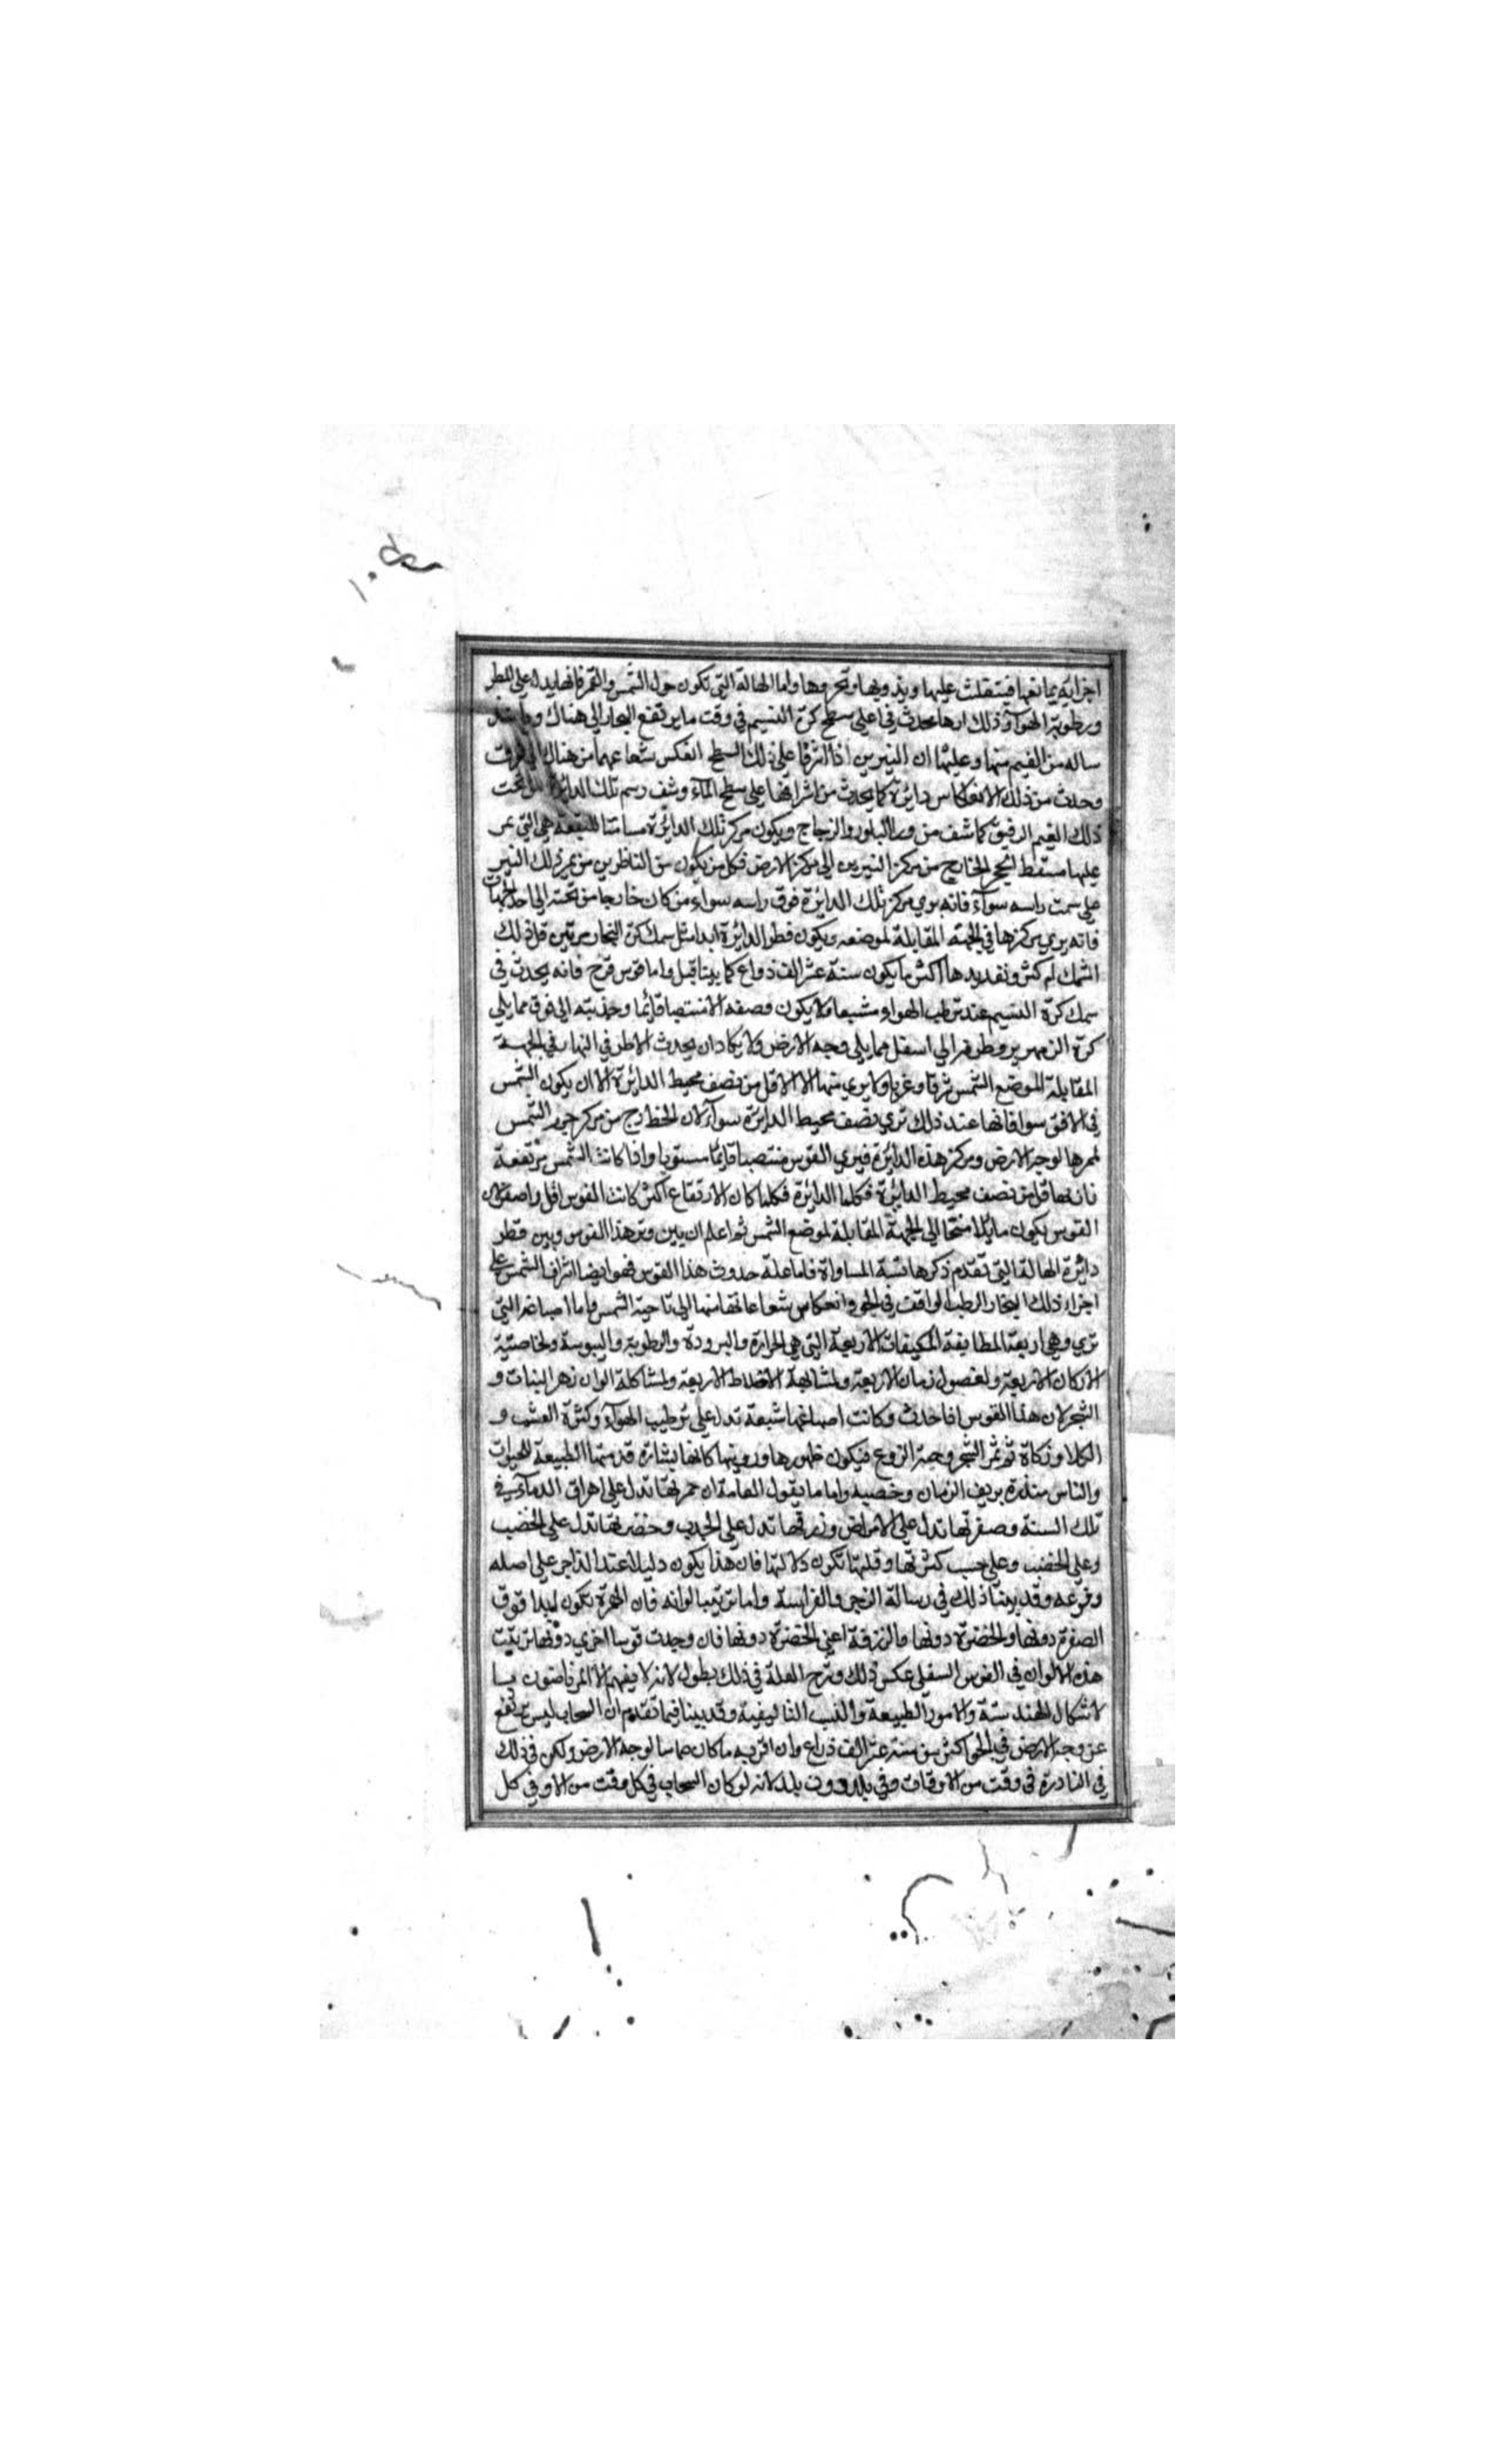 اجزائه يمانعها فيتفلت عليها ويذوبها وتحروها واما الهالة التي تكون حول الشمس والقمر فانها يدل على المطر
ورطوبة الهوآ وذلك انها تحدث في اعلى سطح كرة النسيم في وقت ما يرتفع البخار الى هناك
ساله من الغيم منها وعليتها ان النيرين اذا اشرقا على ذلك السطح انعكس شعاعهما من هناك الى فوق
وحدث من ذلك الانعكاس دايرة كما يحدث من اشراقها على سطح المآء وشف رسم تلك الدائرة من تحت
ذلك الغيم الرقيق كما شف من ورا البلور والزجاج ويكون مركز تلك الدائرة مسامتا للبقعة هي التي يمر
عليها مسقط الخارج من مركز النيرين الى مركز الارض فكل من يكون من الناظرين من يمر ذلك النير
على سمت راسه سوآء فانه يري مركز تلك الدائرة فوق راسه سواء من كان خارجا من تحته الى احد الجهات
فانه يري مركزها في الجهة المقابلة لموضعه ويكون قطر الدائرة ابدا مثل سمك كرة البخار مرتين قل ذلك
السمك ام كثر وتقديرها اكثر ما يكون ستة عشر الف ذراع كما بينا قبل واما قوس قزح فانه يحدث في
سمك كرة النسيم عند ترطب الهواء مشبعا ولا يكون وصفه الا منتصبا قايما وحدبته الى فوق مما يلي
كرة الزمهرير وطرفه الى اسفل مما يلي وجه الارض ولا يكاد ان يحدث الا طرفي النهار في الجهة
المقابلة لموضع الشمس شرقا وغربا ولا يري منها الا الاقل من نصف محيط الدائرة الا ان يكون الشمس
في الافق سوا فانها عند ذلك تري نصف محيط الدايرة سوآء لان الخط رج من مركز جرم الشمس
لممرها لوجه الارض ومركز هذه الدائرة فيري القوس منتصبا قائما مستويا واذا كانت الشمس مرتفعة
فانها اقل من نصف محيط الدائرة فكلما الدائرة فكلما كان الارتفاع اكثر كانت القوس اقل واصغر لان
القوس يكون مايلا منحا الى الجهة المقابلة لموضع الشمس ثم اعلم ان بين وتر هذا القوس وبين قطر
دائرة الهالة التي تقدم ذكرها نسبة المساواة فاما علة حدوث هذا القوس فهو ايضا اشراق الشمس على
اجزاء ذلك البخار الرطب الواقف في الجو وانعكاس شعاعاتها منها الى ناحية الشمس واما اصباغه التي
تري وهي اربعة المطابقة الكيفيات الاربعة التي هي الحرارة والبرودة والرطوبة واليبوسة ولخاصتية
الاركان الاربعة ولفصول زمان الاربعة ولمشابهة الاخلاط الاربعة ولمشاكلة الوان زهر النبات و
الشجر لان هذا القوس اذا حدث وكانت اصباغها شبعة تدل على ترطيب الهوآء وكثرة العشب و
الكلا وزكاة ثم ثمر الشجر وحبة الزرع فيكون ظهورها ورويتها كانها بشارة قدمتها الطبيعة للحيوان
والناس منذرة بريف الزمان وخصبه واما ما يقول العامة ان حمرتها تدل على اهراق الدمآء في
تلك السنة وصفرتها تدل على الامراض وزرقتها تدل على الجدب وخضرتها تدل على الخصب
وعلى الخصب وعلى حسب كثرتها وقلتها تكون دلالتها فان هذا يكون دليلا عند الزاجر على اصله
وفرعه وقد بينا ذلك في رسالة الزجر والفراسة واما ترتيب الوانه فان الحمرة تكون ابدا فوق
الصفرة دونها والخضرة دونها والزرقة اعني الخضرة دونها فان وجدت قوسا اخري دونها ترتيب
هذه الالوان في القوس السفلى عكس ذلك وشرح العلة في ذلك يطول لانه لا يفهم الا المرتاضون با
لاشكال الهندسة والامور الطبيعة والنسب التاليفية وقد بينا فيما تقدم ان السحاب ليس ترتفع
عن وجه الارض في الجو اكثر من ستة عشر الف ذراع وان اقربه ما كان مماسا لوجه الارض ولكن في ذلك
في النادرة في وقت من الاوقات وفي بلد دون بلد لانه لو كان السحاب في كل وقت من الاو في كل